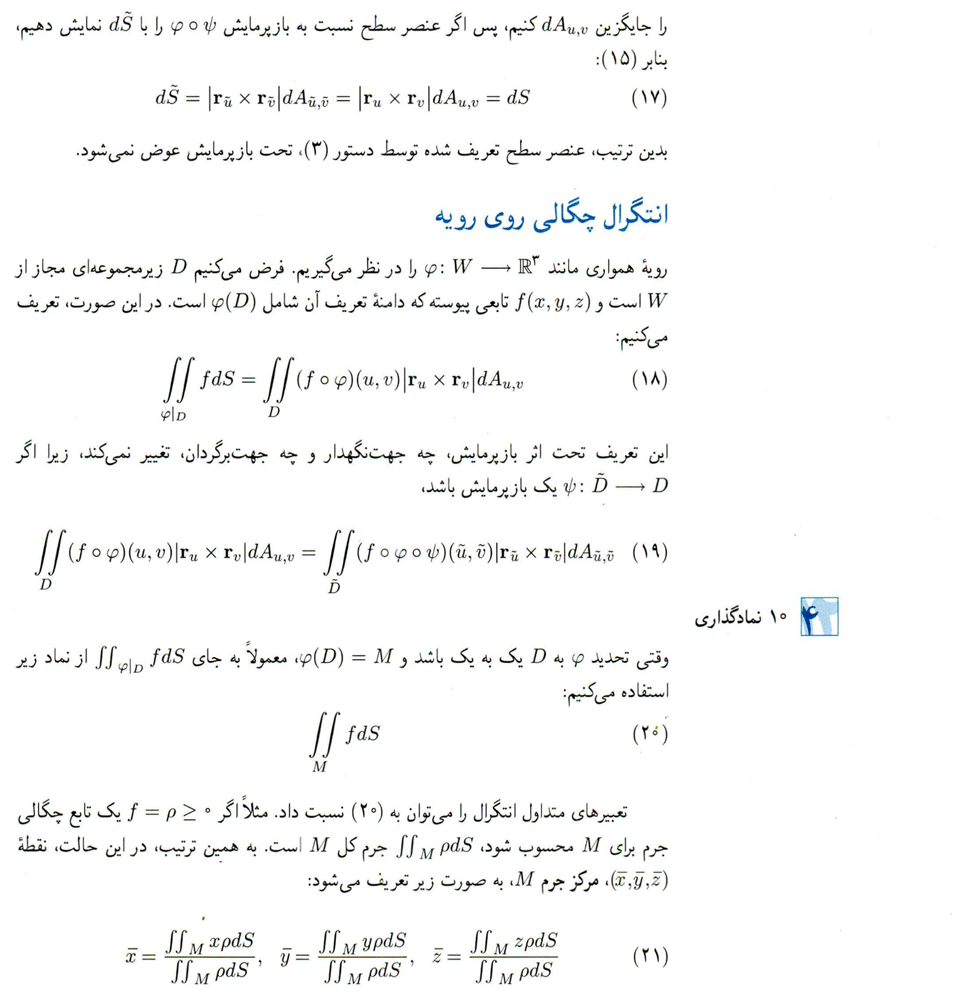 را جایگزین dA_{u,v} کنیم، پس اگر عنصر سطح نسبت به بازپرمایش φ∘ψ را با dS̃ نمایش دهیم،
بنابر (۱۵):
dS̃ = |r_ũ × r_ṽ|dA_{ũ,ṽ} = |r_u × r_v|dA_{u,v} = dS (۱۷)
بدین ترتیب، عنصر سطح تعریف شده توسط دستور (۳)، تحت بازپرمایش عوض نمی‌شود.
انتگرال چگالی روی رویه
رویهٔ همواری مانند φ: W ⟶ ℝ³ را در نظر می‌گیریم. فرض می‌کنیم D زیرمجموعه‌ای مجاز از
W است و f(x, y, z) تابعی پیوسته که دامنهٔ تعریف آن شامل φ(D) است. در این صورت، تعریف
می‌کنیم:
∬_{φ|D} fdS = ∬_D (f ∘ φ)(u, v)|r_u × r_v|dA_{u,v} (۱۸)
این تعریف تحت اثر بازپرمایش، چه جهت‌نگهدار و چه جهت‌برگردان، تغییر نمی‌کند، زیرا اگر
ψ: D̃ ⟶ D یک بازپرمایش باشد،
∬_D (f ∘ φ)(u, v)|r_u × r_v|dA_{u,v} = ∬_D̃ (f ∘ φ ∘ ψ)(ũ, ṽ)|r_ũ × r_ṽ|dA_{ũ,ṽ} (۱۹)
۴ ۱۰ نمادگذاری
وقتی تحدید φ به D یک به یک باشد و φ(D) = M، معمولاً به جای ∬_{φ|D} fdS از نماد زیر
استفاده می‌کنیم:
∬_M fdS (۲۰)
تعبیرهای متداول انتگرال را می‌توان به (۲۰) نسبت داد. مثلاً اگر f = ρ ≥ ۰ یک تابع چگالی
جرم برای M محسوب شود، ∬_M ρdS جرم کل M است. به همین ترتیب، در این حالت، نقطهٔ
(x̄,ȳ,z̄)، مرکز جرم M، به صورت زیر تعریف می‌شود:
x̄ = ∬_M xρdS / ∬_M ρdS, ȳ = ∬_M yρdS / ∬_M ρdS, z̄ = ∬_M zρdS / ∬_M ρdS (۲۱)